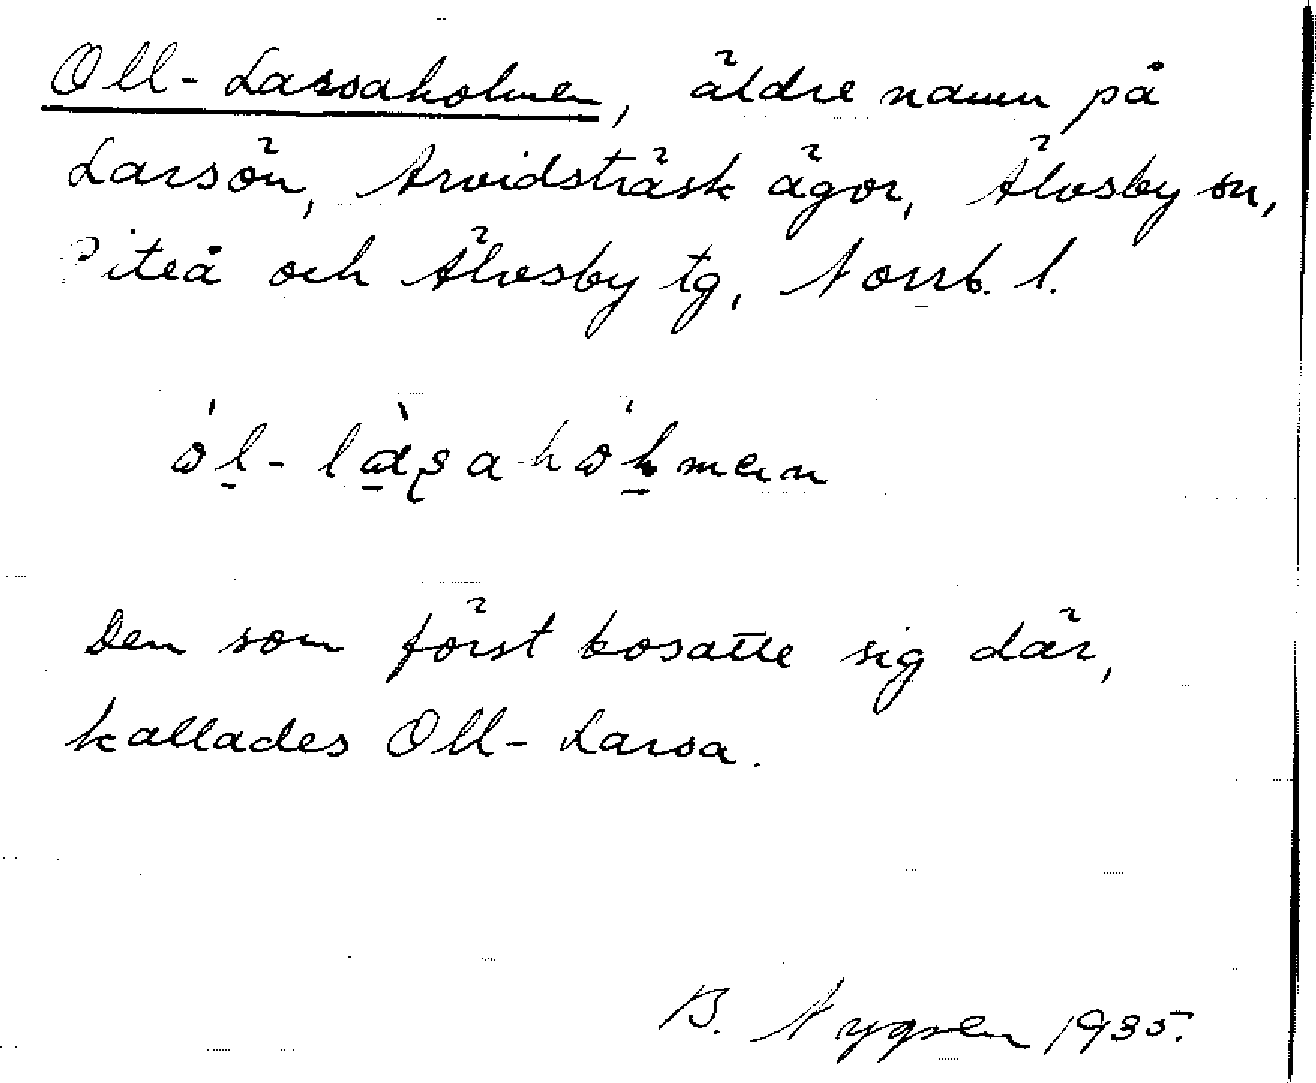 Oll-Larsaholmen, äldre namn på
Larsön, Arvidsträsk ägor, Älvsby sn,
Piteå och Älvsby tg, Norrb. l.
Den som först bosatte sig där,
kallades Oll-Larsa.
B. Nygren 1935.